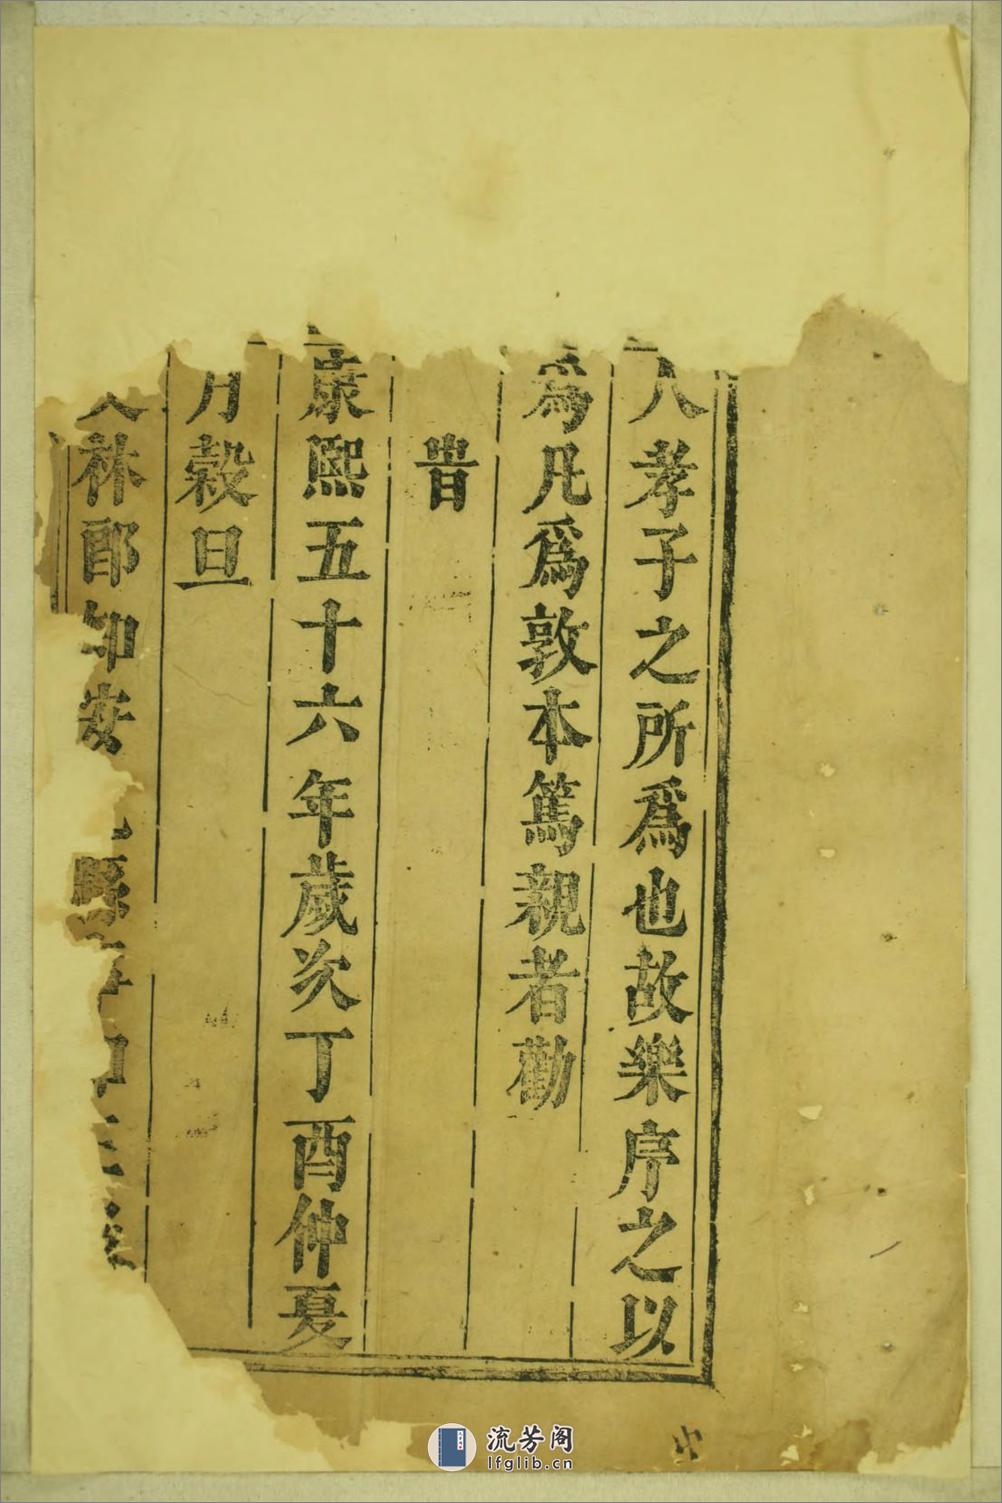 人孝子之所爲也故樂序之以
爲凡爲敦本篤親者勸
旹
康熙五十六年歲次丁酉仲夏
月穀旦
林郎知安縣
流芳阁
lfglib.cn